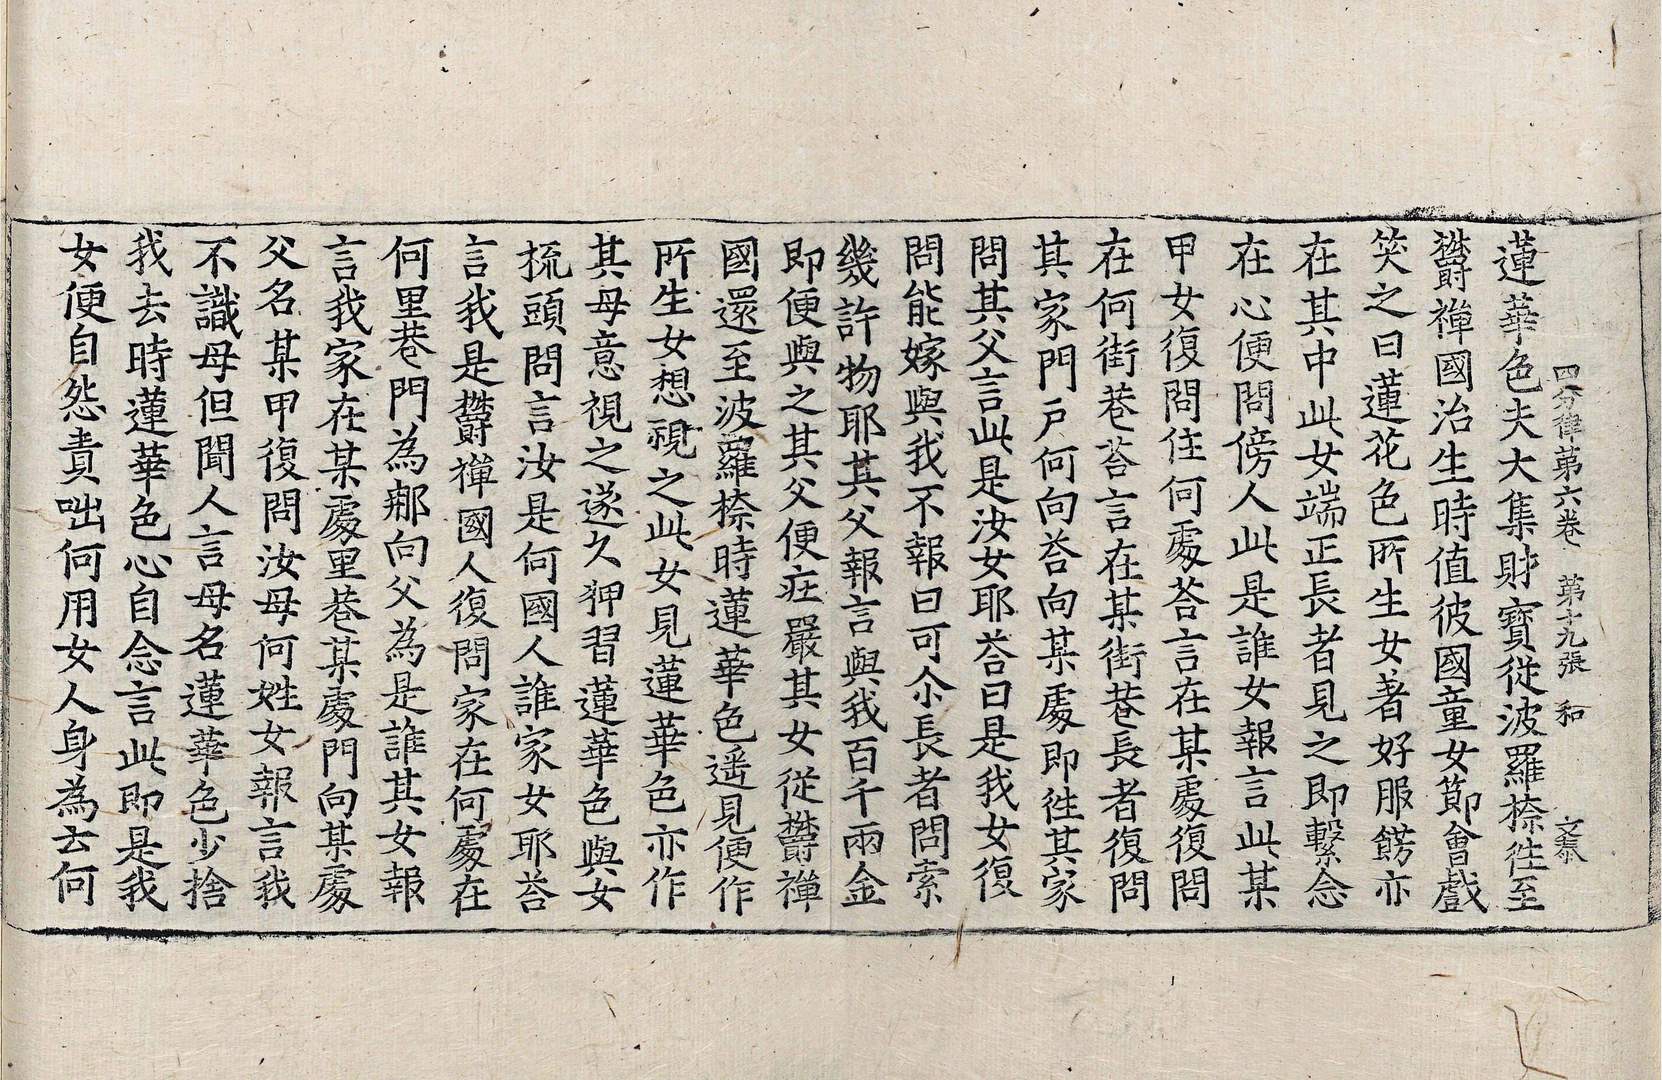 四分律第六卷 第十九張 和 文泰
蓮華色夫大集財寶從波羅㮈徃至
欝禪國治生時值彼國童女節會戲
笑之日蓮花色所生女著好服餝亦
在其中此女端正長者見之即繫念
在心便問傍人此是誰女報言此某
甲女復問住何處荅言在某處復問
在何街巷荅言在某街巷長者復問
其家門戶何向荅向某處即徃其家
問其父言此是汝女耶荅曰是我女復
問能嫁與我不報曰可尒長者問索
幾許物耶其父報言與我百千兩金
即便與之其父便莊嚴其女從欝禪
國還至波羅㮈時蓮華色遥見便作
所生女想視之此女見蓮華色亦作
其母意視之遂久狎習蓮華色與女
梳頭問言汝是何國人誰家女耶荅
言我是欝禪國人復問家在何處在
何里巷門為那向父為是誰其女報
言我家在某處里巷某處門向某處
父名某甲復問汝母何姓女報言我
不識母但聞人言母名蓮華色少捨
我去時蓮華色心自念言此即是我
女便自怨責咄何用女人身為云何